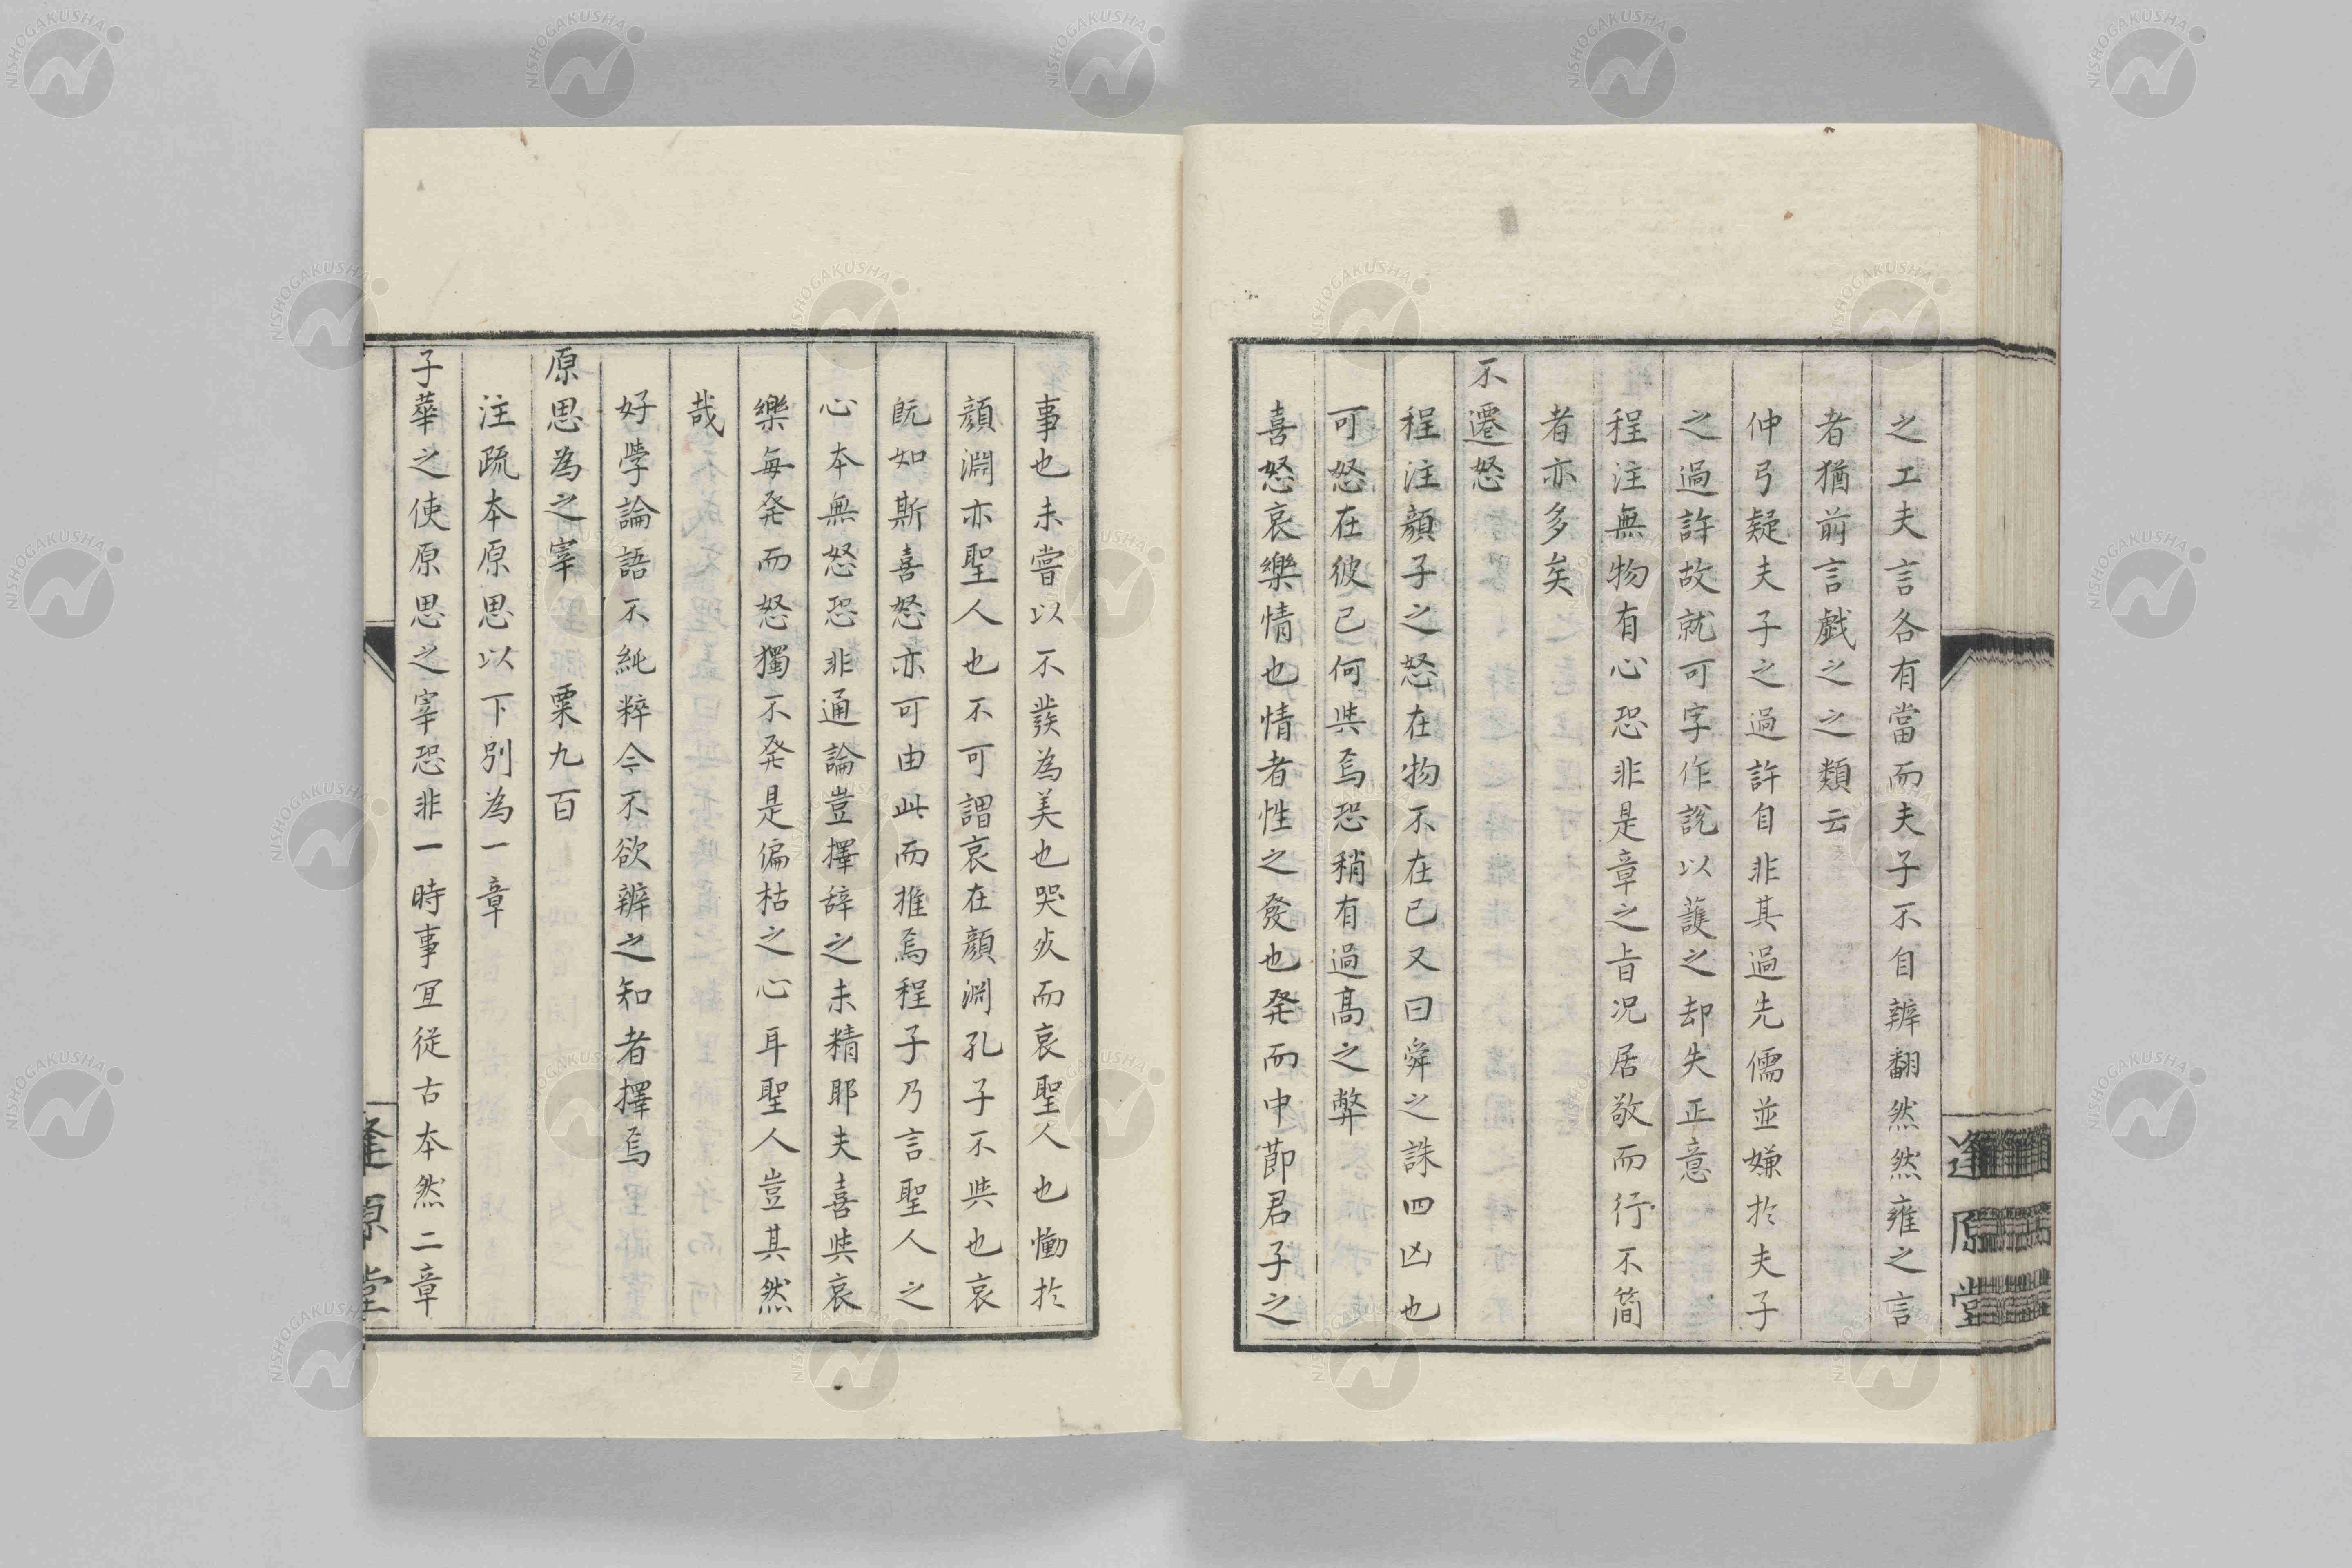 之工夫言各有當而夫子不自辨翻然然雍之言
者猶前言戲之之類云
仲弓疑夫子之過許自非其過先儒並嫌於夫子
之過許故就可字作說以護之却失正意
程注無物有心恐非是章之旨況居敬而行不簡
者亦多矣
不遷怒
程注顏子之怒在物不在已又曰舜之誅四凶也
可怒在彼己何與焉恐稍有過高之弊
喜怒哀樂情也情者性之發也発而中節君子之
逢原堂
事也未嘗以不發為美也哭死而哀聖人也慟於
顏淵亦聖人也不可謂哀在顏淵孔子不與也哀
既如斯喜怒亦可由此而推焉程子乃言聖人之
心本無怒恐非通論豈擇辞之未精耶夫喜與哀
樂每発而怒獨不発是偏枯之心耳聖人豈其然
哉
好學論語不純粹今不欲辨之知者擇焉
原思為之宰　粟九百
注疏本原思以下別為一章
子華之使原思之宰恐非一時事宜從古本然二章
逢原堂
NISHOGAKUSHA